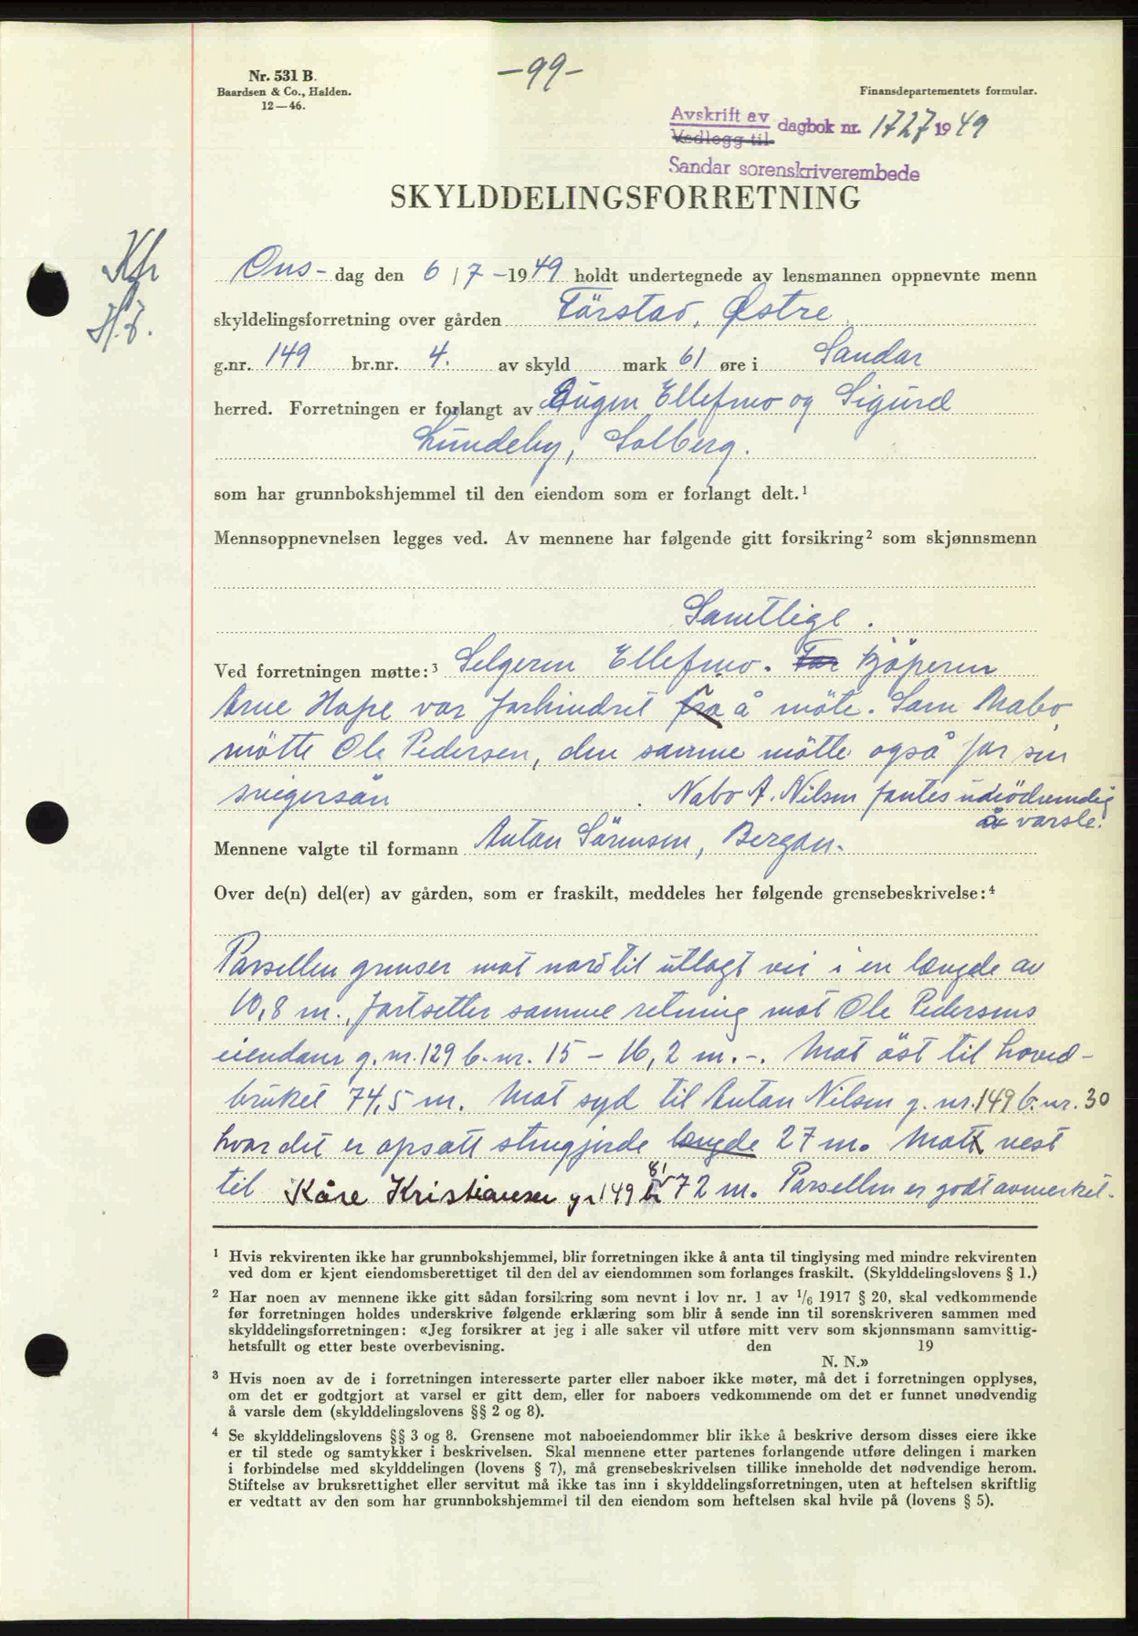 -99-
Nr. 531 B.
Baardsen & Co., Halden.
12-46.
Finansdepartementets formular.
Avskrift av
Vedlegg til
dagbok nr. 1727 1949
Sandar sorenskriverembede
SKYLDDELINGSFORRETNING
Ons- dag den 6/7-1949 holdt undertegnede av lensmannen oppnevnte menn
skyldelingsforretning over gården Fårstad, Østre
g.nr. 149 br.nr. 4. av skyld mark 61 øre i Sandar
herred. Forretningen er forlangt av Eugen Ellefmo og Sigurd
Lundeby, Solberg.
som har grunnbokshjemmel til den eiendom som er forlangt delt.¹
Mennsoppnevnelsen legges ved. Av mennene har følgende gitt forsikring² som skjønnsmenn
Samtlige.
Ved forretningen møtte:³ Selgeren Ellefmo. For Kjöperen
Arne Hope var forhindret fra å möte. Som Nabo
mötte Ole Pedersen, den samme mötte også for sin
svigersån . Nabo A. Nilsen fantes unödvendig
å varsle.
Mennene valgte til formann Anton Sörensen, Bergan.
Over de(n) del(er) av gården, som er fraskilt, meddeles her følgende grensebeskrivelse:⁴
Parsellen grenser mot nord til utlagt vei i en længde av
10,8 m., fortsetter samme retning mot Ole Pedersens
eiendom g.nr. 129 b.nr. 15 - 16,2 m.-. Mot öst til hoved-
bruket 74,5 m. Mot syd til Anton Nilsen g.nr. 149 b.nr. 30
hvor det er opsatt stengjerde længde 27 m. Mot vest
til Kåre Kristiansen gr 149 br 81 72 m. Parsellen er godt avmerket.
¹ Hvis rekvirenten ikke har grunnbokshjemmel, blir forretningen ikke å anta til tinglysing med mindre rekvirenten
ved dom er kjent eiendomsberettiget til den del av eiendommen som forlanges fraskilt. (Skylddelingslovens § 1.)
² Har noen av mennene ikke gitt sådan forsikring som nevnt i lov nr. 1 av 1/6 1917 § 20, skal vedkommende
før forretningen holdes underskrive følgende erklæring som blir å sende inn til sorenskriveren sammen med
skylddelingsforretningen: «Jeg forsikrer at jeg i alle saker vil utføre mitt verv som skjønnsmann samvittig-
hetsfullt og etter beste overbevisning. den 19
N. N.»
³ Hvis noen av de i forretningen interesserte parter eller naboer ikke møter, må det i forretningen opplyses,
om det er godtgjort at varsel er gitt dem, eller for naboers vedkommende om det er funnet unødvendig
å varsle dem (skylddelingslovens §§ 2 og 8).
⁴ Se skylddelingslovens §§ 3 og 8. Grensene mot naboeiendommer blir ikke å beskrive dersom disses eiere ikke
er til stede og samtykker i beskrivelsen. Skal mennene etter partenes forlangende utføre delingen i marken
i forbindelse med skylddelingen (lovens § 7), må grensebeskrivelsen tillike inneholde det nødvendige herom.
Stiftelse av bruksrettighet eller servitut må ikke tas inn i skylddelingsforretningen, uten at heftelsen skriftlig
er vedtatt av den som har grunnbokshjemmel til den eiendom som heftelsen skal hvile på (lovens § 5).